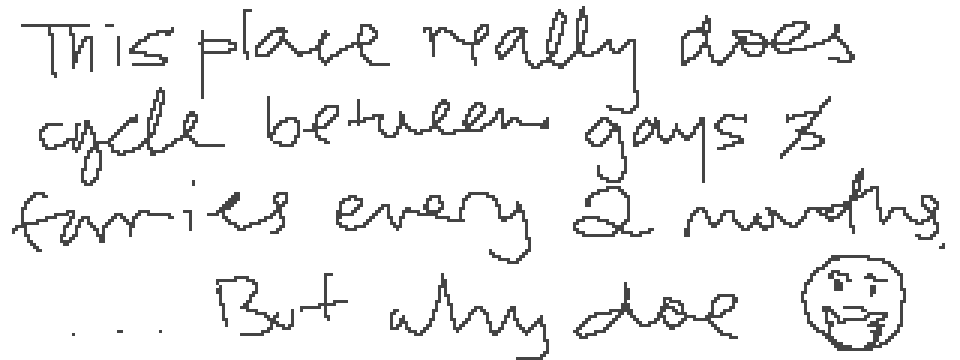 This place really does
cycle between gays &
farries every 2 months.
.... But why doe